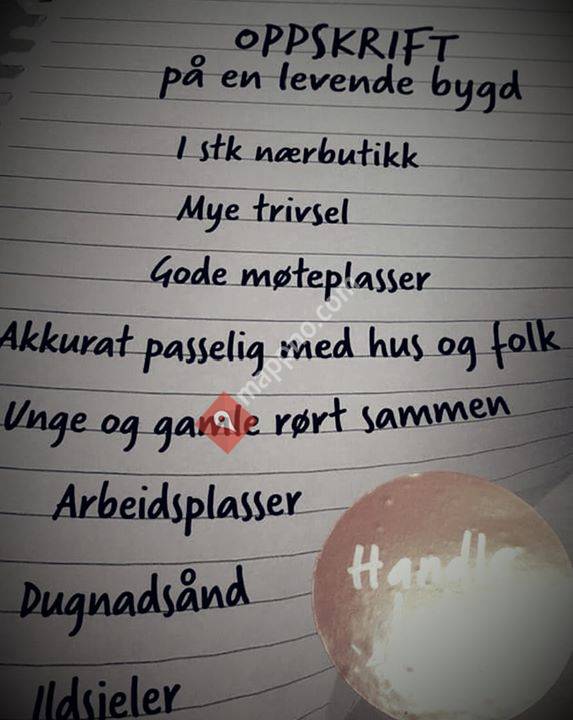 OPPSKRIFT
på en levende bygd
1 stk nærbutikk
Mye trivsel
Gode møteplasser
Akkurat passelig med hus og folk
Unge og gamle rørt sammen
Arbeidsplasser
Dugnadsånd
Ildsjeler
Handle
mappno.com